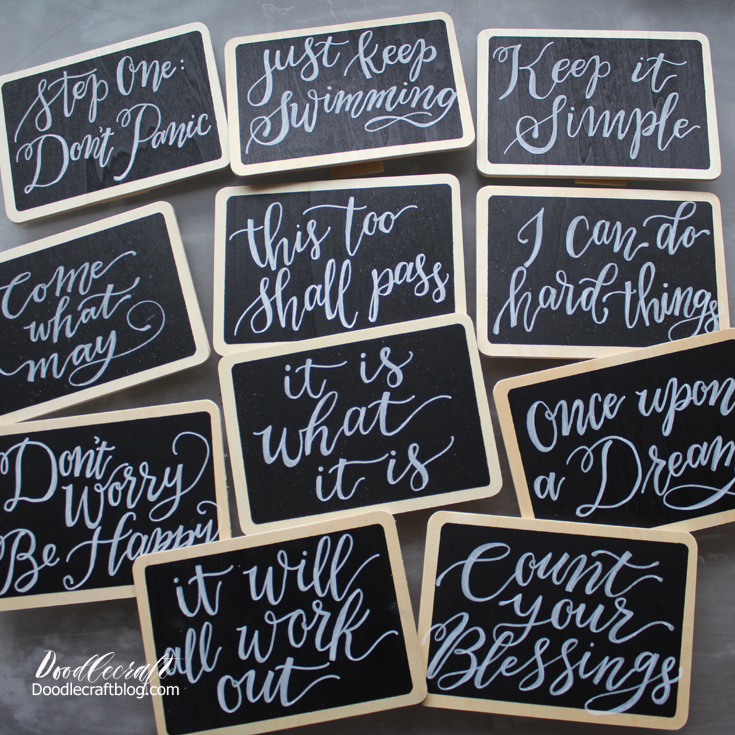 Step One:
Don't Panic
just keep
swimming
Keep it
Simple
Come
what
may
this too
shall pass
I can do
hard things
it is
what
it is
Once upon
a Dream
Don't
Worry
Be Happy
it will
all work
out
Count
your
Blessings
Doodlecraft
Doodlecraftblog.com